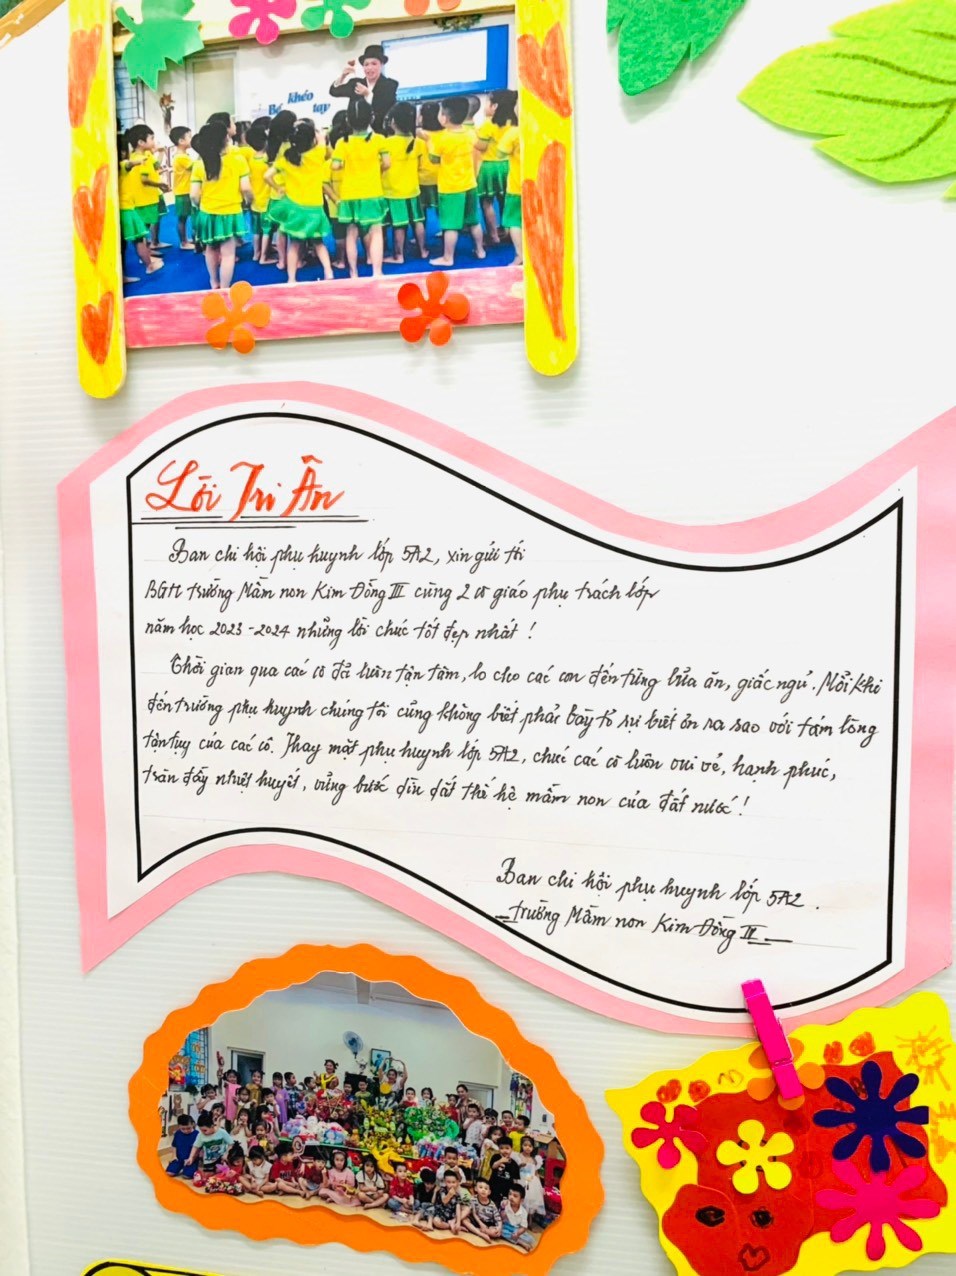 Bé khéo tay
Lời Tri Ân
Ban chi hội phụ huynh lớp 5A2, xin gửi tới
BGH trường Mầm non Kim Đồng III cùng 2 cô giáo phụ trách lớp
năm học 2023-2024 những lời chúc tốt đẹp nhất!
Thời gian qua các cô đã luôn tận tâm, lo cho các con đến từng bữa ăn, giấc ngủ. Mỗi khi
đến trường phụ huynh chúng tôi cũng không biết phải bày tỏ sự biết ơn ra sao với tấm lòng
tận tụy của các cô. Thay mặt phụ huynh lớp 5A2, chúc các cô luôn vui vẻ, hạnh phúc,
tràn đầy nhiệt huyết, vững bước dìu dắt thế hệ mầm non của đất nước!
Ban chi hội phụ huynh lớp 5A2.
Trường Mầm non Kim Đồng III